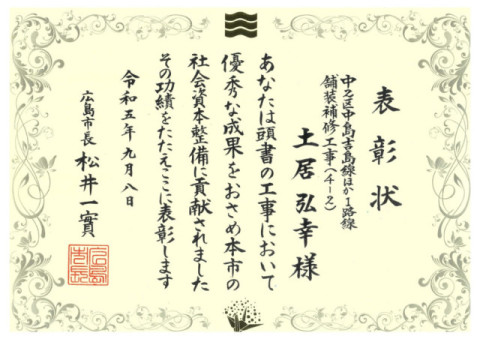 表彰状
中2区中島吉島線ほか1路線
舗装補修工事(4-2)
土居弘幸様
あなたは頭書の工事において
優秀な成果をおさめ本市の
社会資本整備に貢献されました
その功績をたたえここに表彰します
令和五年九月八日
広島市長 松井一實
広島市長